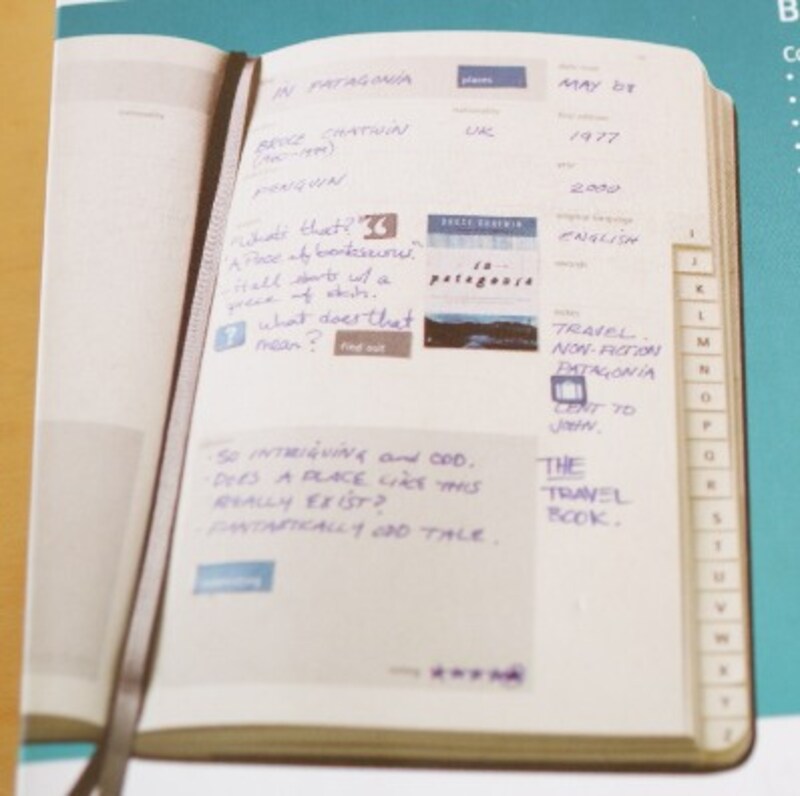 B
Co
IN PATAGONIA
places
MAY 08
BRUCE CHATWIN
nationality
UK
1977
PENGUIN
year
2000
original language
ENGLISH
awards
"What's that?"
"A Piece of brontosaurus."
- It all starts w/ a
piece of skin.
?
what does that
mean?
find out
BRUCE CHATWIN
in
patagonia
notes
TRAVEL.
NON-FICTION
PATAGONIA
LENT TO
JOHN.
THE
TRAVEL
BOOK.
- SO INTRIGUING and ODD.
- DOES A PLACE LIKE THIS
REALLY EXIST?
- FANTASTICALLY ODD TALE.
interesting
rating
I
J
K
L
M
N
O
P
Q
R
S
T
U
V
W
X
Y
Z